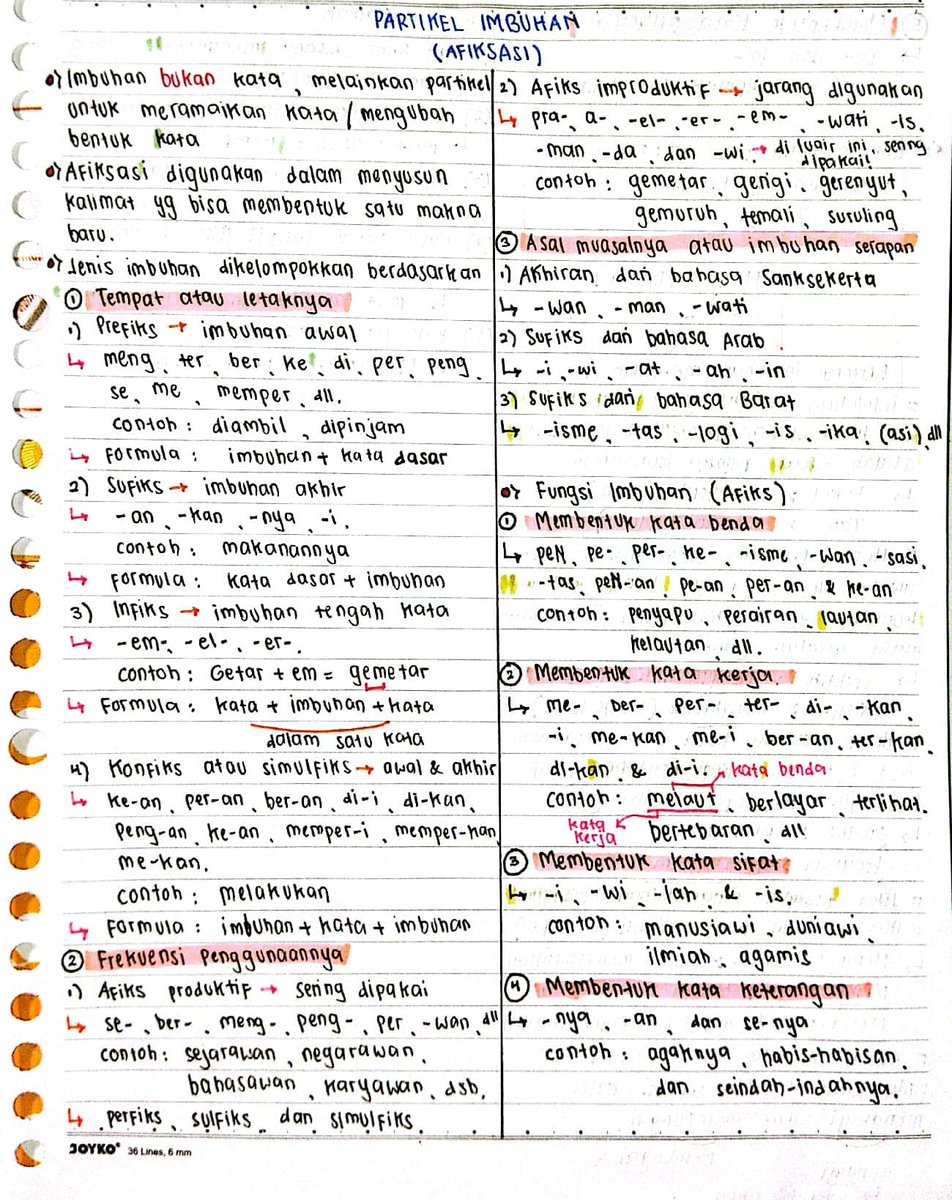 PARTIKEL IMBUHAN
(AFIKSASI)
Imbuhan bukan kata, melainkan partikel
untuk meramaikan kata/mengubah
bentuk kata
Afiksasi digunakan dalam menyusun
kalimat yg bisa membentuk satu makna
baru.
Jenis imbuhan dikelompokkan berdasarkan
① Tempat atau letaknya
1) Prefiks → imbuhan awal
↳ meng, ter, ber, ke, di, per, peng,
se, me, memper, dll.
contoh: diambil, dipinjam
↳ Formula: imbuhan + kata dasar
2) Sufiks → imbuhan akhir
↳ -an, -kan, -nya, -i.
contoh: makanannya
↳ Formula: kata dasar + imbuhan
3) Infiks → imbuhan tengah kata
↳ -em-, -el-, -er-.
contoh: Getar + em = gemetar
↳ Formula: kata + imbuhan + kata
dalam satu kata
4) Konfiks atau simulfiks → awal & akhir
↳ ke-an, per-an, ber-an, di-i, di-kan,
peng-an, ke-an, memper-i, memper-kan,
me-kan.
contoh: melakukan
↳ Formula: imbuhan + kata + imbuhan
② Frekuensi penggunaannya
1) Afiks produktif → sering dipakai
↳ se-, ber-, meng-, peng-, per, -wan, dll
contoh: sejarawan, negarawan,
bahasawan, karyawan, dsb.
↳ perfiks, sulfiks, dan simulfiks.
2) Afiks improduktif → jarang digunakan
↳ pra-, a-, -el-, -er-, -em-, -wati, -is,
-man, -da, dan -wi → di luar ini, sering
dipakai!
contoh: gemetar, gerigi, gerenyut,
gemuruh, temali, suruling
③ Asal muasalnya atau imbuhan serapan
1) Akhiran dari bahasa Sanksekerta
↳ -wan, -man, -wati
2) Sufiks dari bahasa Arab.
↳ -i, -wi, -at, -ah, -in
3) Sufiks dari bahasa Barat
↳ -isme, -tas, -logi, -is, -ika, (asi) dll
Fungsi Imbuhan (Afiks)
① Membentuk kata benda
↳ peN, pe-, per-, ke-, -isme, -wan, -sasi,
-tas, peN-an, pe-an, per-an, & ke-an
contoh: penyapu, perairan, lautan,
kelautan, dll.
② Membentuk kata kerja.
↳ me-, ber-, per-, ter-, di-, -kan,
-i, me-kan, me-i, ber-an, ter-kan,
di-kan, & di-i. kata benda
contoh: melaut, berlayar, terlihat,
kata kerja bertebaran, dll
③ Membentuk kata sifat
↳ -i, -wi, -iah, & -is.
contoh: manusiawi, duniawi,
ilmiah, agamis
④ Membentuk kata keterangan
↳ -nya, -an, dan se-nya
contoh: agaknya, habis-habisan,
dan seindah-indahnya.
JOYKO 36 Lines, 6 mm